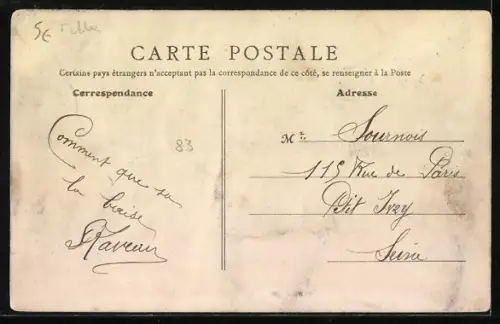 5€
CARTE POSTALE
Certains pays étrangers n'acceptant pas la correspondance de ce côté, se renseigner à la Poste
Correspondance
Adresse
83
Comment que sa
la baise
Raveau
Mr Sournois
115 Rue de Paris
Ptit Ivry
Seine